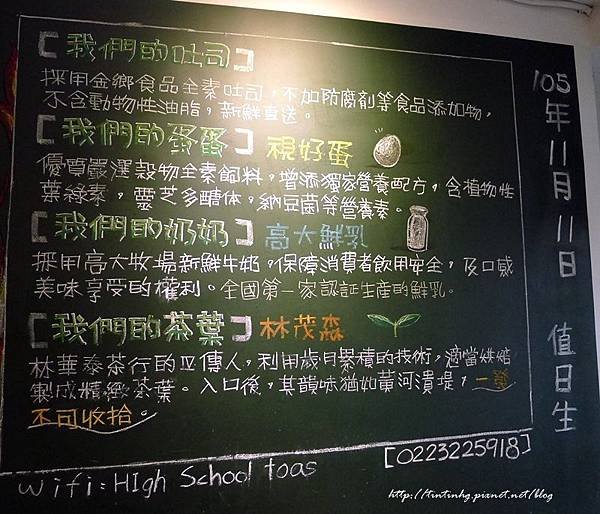 【我們的吐司】
採用金鄉食品全素吐司，不加防腐劑等食品添加物，
不含動物性油脂，新鮮直送。
【我們的蛋蛋】視好蛋
優質嚴選穀物全素飼料，增添獨家營養配方，含植物性
葉綠素，靈芝多醣体，納豆菌等營養素。
【我們的奶奶】高大鮮乳
採用高大牧場新鮮牛奶，保障消費者飲用安全，及口感
美味享受的權利。全國第一家認証生產的鮮乳。
【我們的茶葉】林茂森
林華泰茶行的四傳人，利用歲月累積的技術，適當烘焙
製成精緻茶葉。入口後，其韻味猶如黃河潰堤，一發
不可收拾。
105年11月11日 值日生
[0223225918]
Wifi：HIgh School toas
http://tintinhg.pixnet.net/blog